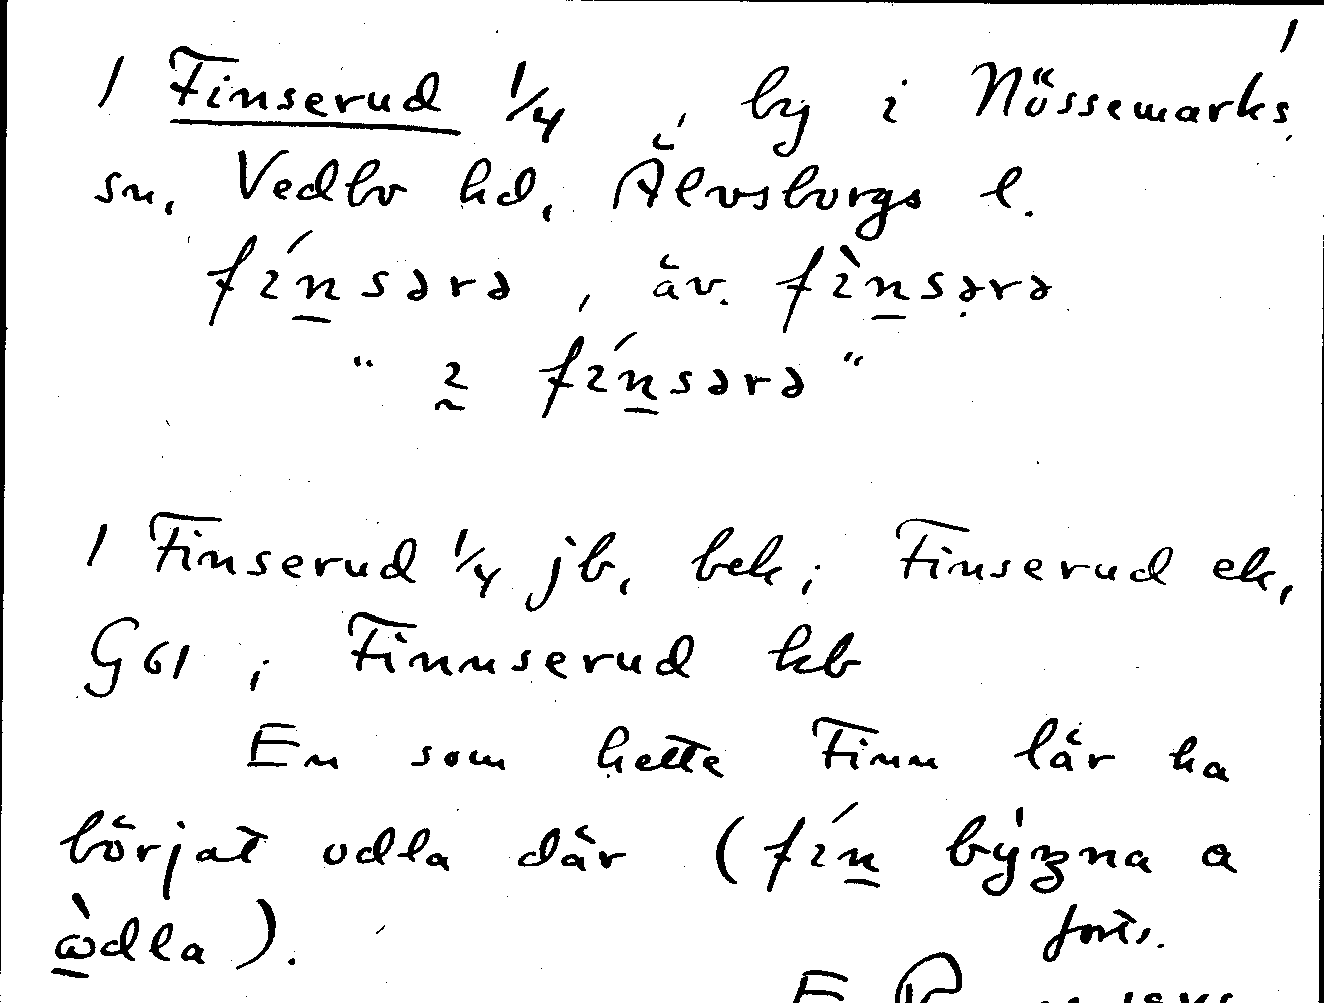 1
1 Finserud 1/4 , by i Nössemarks
sn, Vedbo hd, Älvsborgs l.
fínsərə , äv. fìnsərə
" 2 fínsərə "
1 Finserud 1/4 jb, bek; Finserud ek,
G61 ; Finnserud kb
En som hette Finn lär ha
börjat odla där (fín býzna a
ὼdla).
forts.